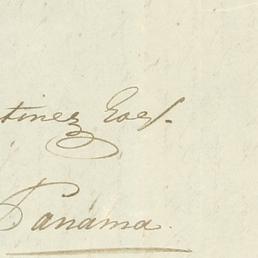 tinez Esqr.
Panama.